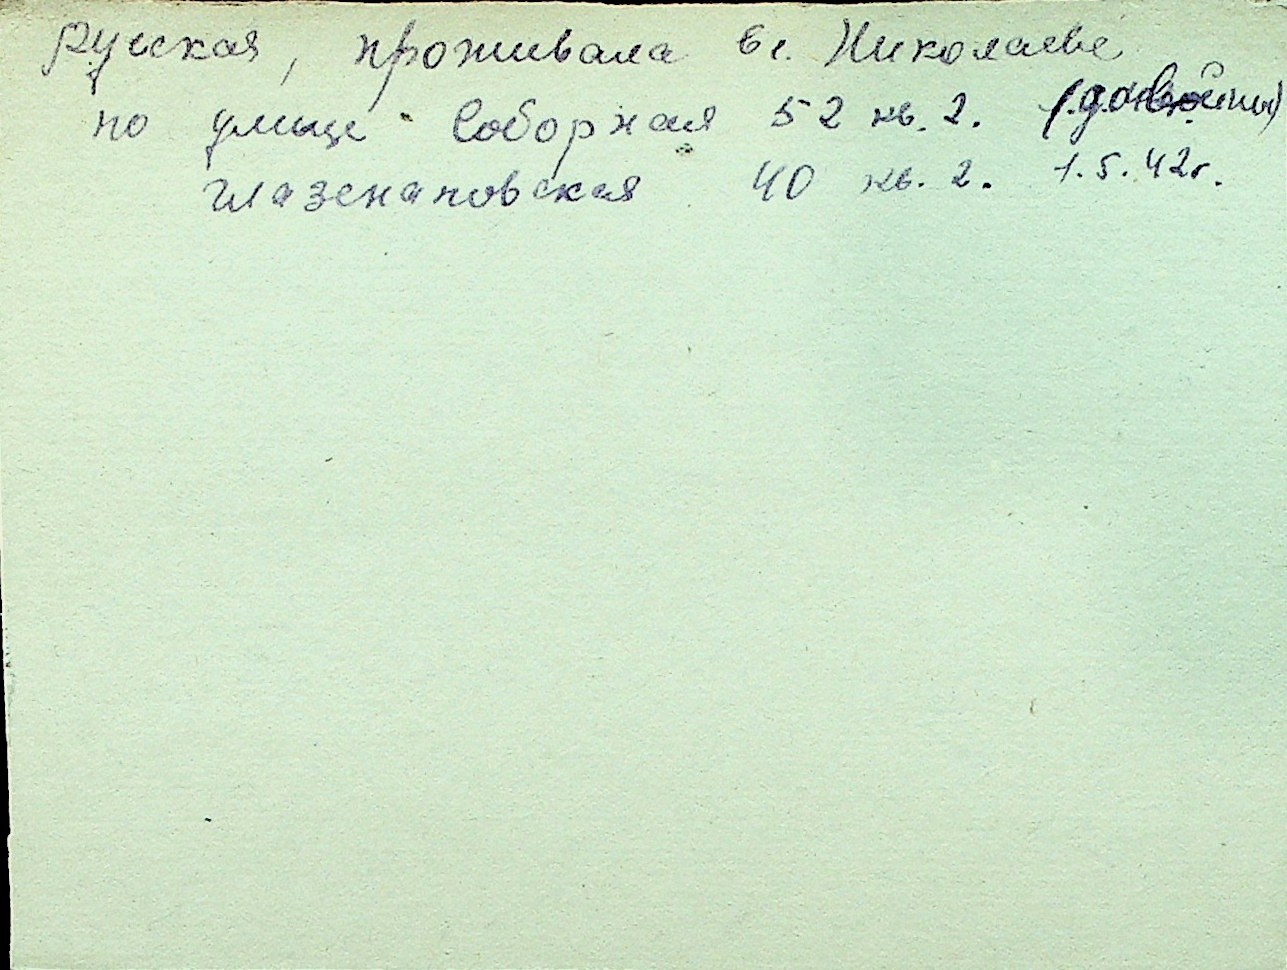 Русская, проживала в г. Николаеве
по улице Соборная 52 кв. 2. (до войны)
Глазенаповская 40 кв. 2. 1.5.42г.